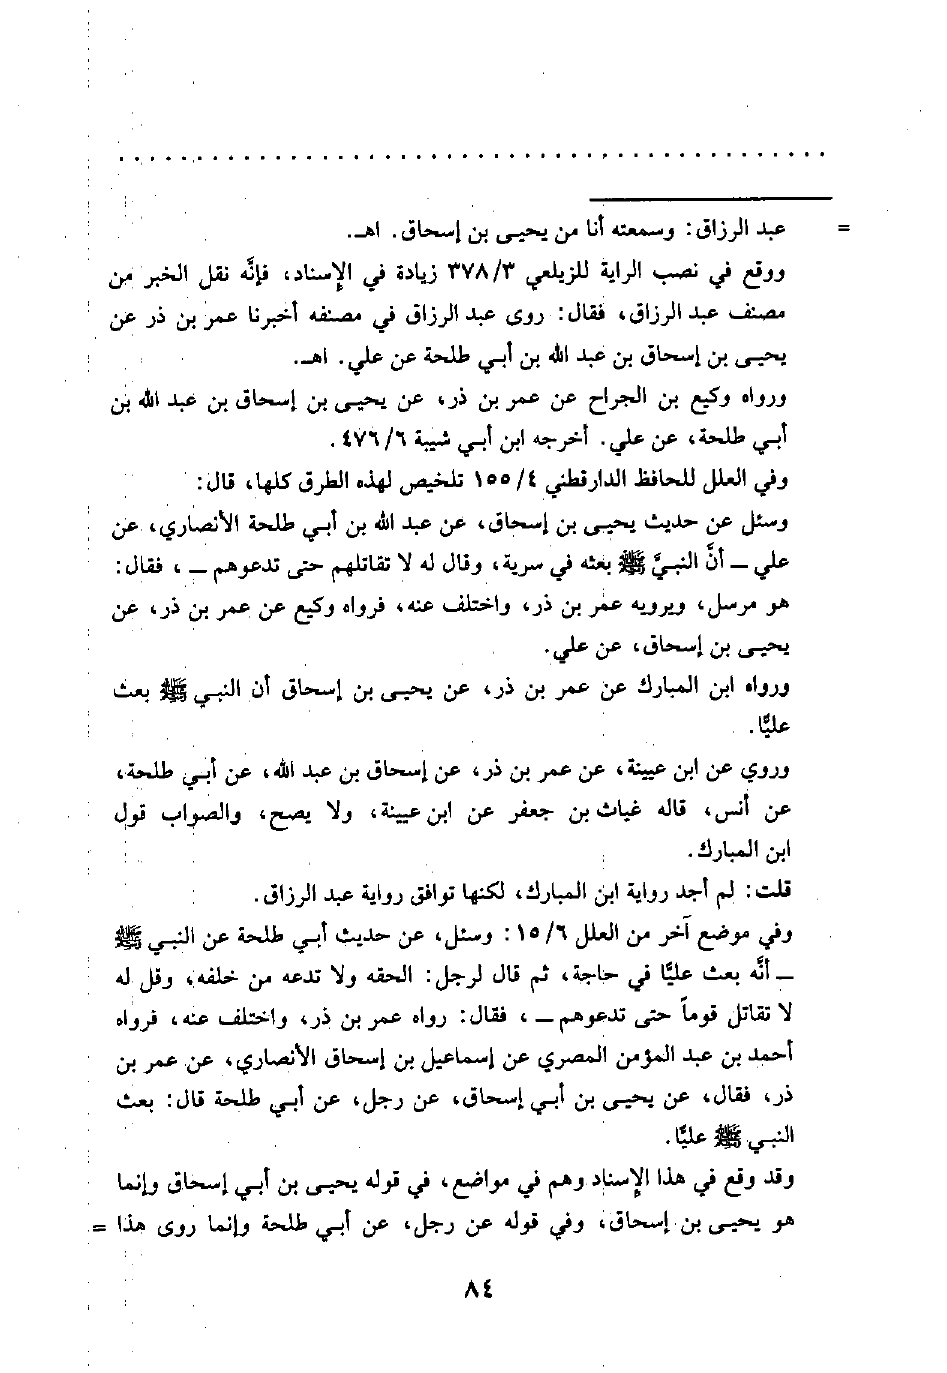 = عبد الرزاق: وسمعته أنا من يحيى بن إسحاق. اهـ.
ووقع في نصب الراية للزيلعي ٣٧٨/٣ زيادة في الإسناد، فإنَّه نقل الخبر من
مصنف عبد الرزاق، فقال: روى عبد الرزاق في مصنفه أخبرنا عمر بن ذر عن
يحيى بن إسحاق بن عبد الله بن أبي طلحة عن علي. اهـ.
ورواه وكيع بن الجراح عن عمر بن ذر، عن يحيى بن إسحاق بن عبد الله بن
أبي طلحة، عن علي. أخرجه ابن أبي شيبة ٤٧٦/٦.
وفي العلل للحافظ الدارقطني ١٥٥/٤ تلخيص لهذه الطرق كلها، قال:
وسئل عن حديث يحيى بن إسحاق، عن عبد الله بن أبي طلحة الأنصاري، عن
علي ــ أنَّ النبيَّ ﷺ بعثه في سرية، وقال له لا تقاتلهم حتى تدعوهم ــ، فقال:
هو مرسل، ويرويه عمر بن ذر، واختلف عنه، فرواه وكيع عن عمر بن ذر، عن
يحيى بن إسحاق، عن علي.
ورواه ابن المبارك عن عمر بن ذر، عن يحيى بن إسحاق أن النبي ﷺ بعث
عليًّا.
وروي عن ابن عيينة، عن عمر بن ذر، عن إسحاق بن عبد الله، عن أبي طلحة،
عن أنس، قاله غياث بن جعفر عن ابن عيينة، ولا يصح، والصواب قول
ابن المبارك.
قلت: لم أجد رواية ابن المبارك، لكنها توافق رواية عبد الرزاق.
وفي موضع آخر من العلل ١٥/٦: وسئل، عن حديث أبي طلحة عن النبي ﷺ
ــ أنَّه بعث عليًّا في حاجة، ثم قال لرجل: الحقه ولا تدعه من خلفه، وقل له
لا تقاتل قوماً حتى تدعوهم ــ، فقال: رواه عمر بن ذر، واختلف عنه، فرواه
أحمد بن عبد المؤمن المصري عن إسماعيل بن إسحاق الأنصاري، عن عمر بن
ذر، فقال، عن يحيى بن أبي إسحاق، عن رجل، عن أبي طلحة قال: بعث
النبي ﷺ عليًّا.
وقد وقع في هذا الإسناد وهم في مواضع، في قوله يحيى بن أبي إسحاق وإنما
هو يحيى بن إسحاق، وفي قوله عن رجل، عن أبي طلحة وإنما روى هذا =
٨٤